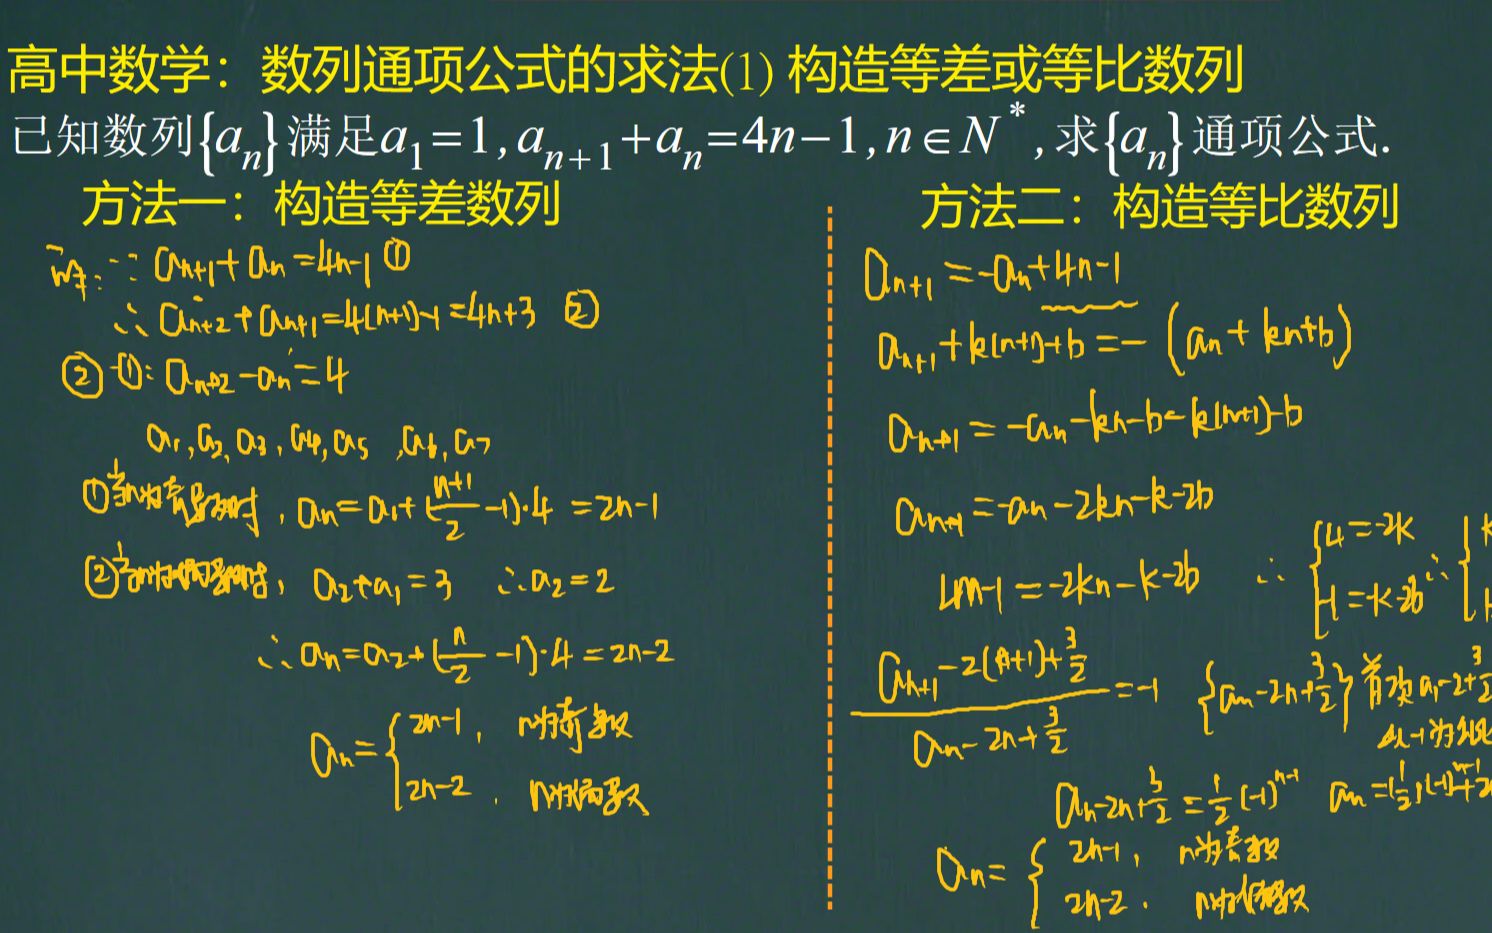 高中数学：数列通项公式的求法(1) 构造等差或等比数列
已知数列{aₙ}满足a₁=1,aₙ₊₁+aₙ=4n−1,n∈N*,求{aₙ}通项公式.
方法一：构造等差数列
∵ aₙ₊₁+aₙ=4n-1 ①
∴ aₙ₊₂+aₙ₊₁=4(n+1)-1=4n+3 ②
②-①: aₙ₊₂-aₙ=4
a₁,a₂,a₃,a₄,a₅,a₆,a₇
①当n为奇数时, aₙ=a₁+(n+1/2-1)·4=2n-1
②当n为偶数时, a₂+a₁=3 ∴a₂=2
∴aₙ=a₂+(n/2-1)·4=2n-2
aₙ={2n-1, n为奇数
2n-2, n为偶数
方法二：构造等比数列
aₙ₊₁=-aₙ+4n-1
aₙ₊₁+k(n+1)+b=-(aₙ+kn+b)
aₙ₊₁=-aₙ-kn-b-k(n+1)-b
aₙ₊₁=-aₙ-2kn-k-2b
4n-1=-2kn-k-2b ∴{4=-2k
-1=-k-2b ∴{
aₙ₊₁-2(n+1)+3/2
aₙ-2n+3/2 =-1 {aₙ-2n+3/2}首项a₁-2+3/2
以-1为
aₙ-2n+3/2=1/2(-1)ⁿ⁻¹ aₙ=(1/2)(-1)ⁿ⁻¹+2
aₙ={2n-1, n为奇数
2n-2. n为偶数